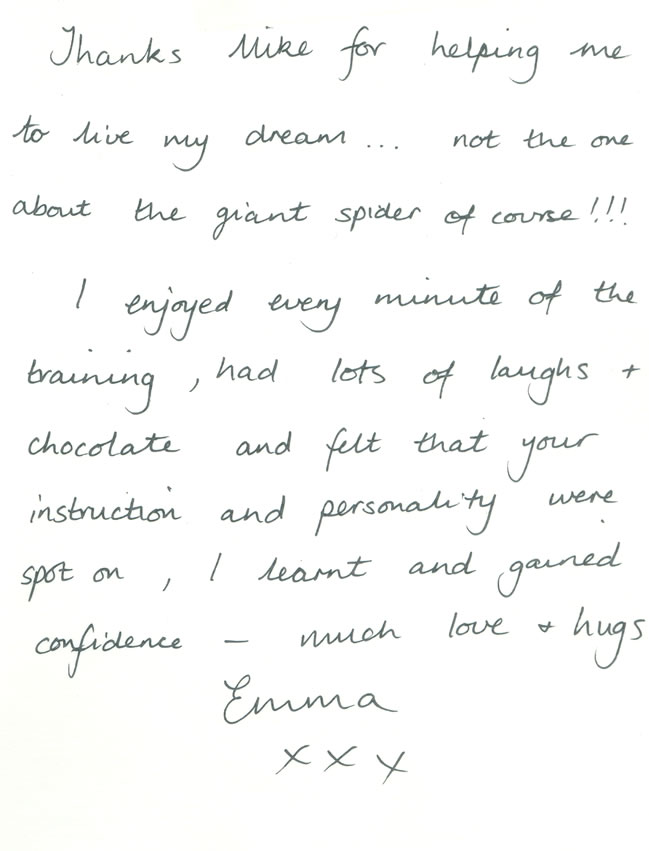 Thanks Mike for helping me
to live my dream... not the one
about the giant spider of course!!!
I enjoyed every minute of the
training, had lots of laughs +
chocolate and felt that your
instruction and personality were
spot on, I learnt and gained
confidence – much love + hugs
Emma
xxx